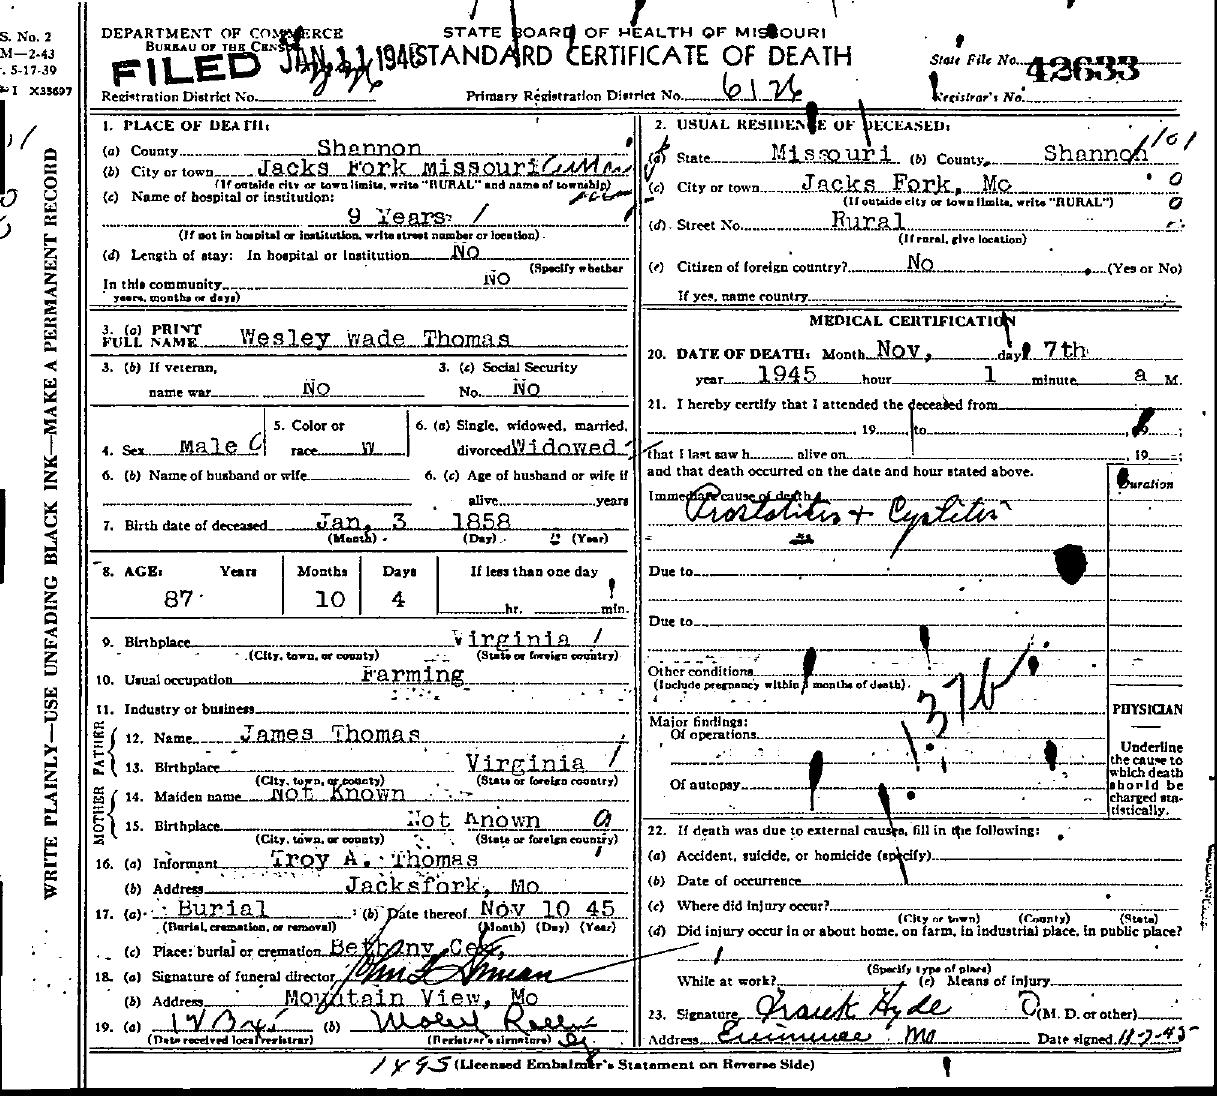 S. No. 2
M—2-43
. 5-17-39
I X35697
WRITE PLAINLY—USE UNFADING BLACK INK—MAKE A PERMANENT RECORD
DEPARTMENT OF COMMERCE
BUREAU OF THE CENSUS
STATE BOARD OF HEALTH OF MISSOURI
STANDARD CERTIFICATE OF DEATH
FILED JAN 11 1946
State File No. 42633
Registration District No.
Primary Registration District No. 6126
Registrar's No.
1. PLACE OF DEATH:
(a) County Shannon
(b) City or town Jacks Fork missouri
(If outside city or town limits, write "RURAL" and name of township)
(c) Name of hospital or institution:
9 Years
(If not in hospital or institution, write street number or location)
(d) Length of stay: In hospital or institution No
(Specify whether
In this community No
years, months or days)
2. USUAL RESIDENCE OF DECEASED:
(a) State Missouri (b) County Shannon
(c) City or town Jacks Fork, Mo
(If outside city or town limits, write "RURAL")
(d) Street No. Rural
(If rural, give location)
(e) Citizen of foreign country? No (Yes or No)
If yes, name country
3. (a) PRINT FULL NAME Wesley wade Thomas
3. (b) If veteran, name war No
3. (c) Social Security No. No
4. Sex Male
5. Color or race W
6. (a) Single, widowed, married, divorced Widowed
6. (b) Name of husband or wife
6. (c) Age of husband or wife if alive years
7. Birth date of deceased Jan, 3 1858
(Month) (Day) (Year)
8. AGE: Years Months Days If less than one day
87 10 4 hr. min.
9. Birthplace Virginia
(City, town, or county) (State or foreign country)
10. Usual occupation Farming
11. Industry or business
FATHER
12. Name James Thomas
13. Birthplace Virginia
(City, town, or county) (State or foreign country)
MOTHER
14. Maiden name Not Known
15. Birthplace Not Known
(City, town, or county) (State or foreign country)
16. (a) Informant Troy A. Thomas
(b) Address Jacksfork, Mo
17. (a) Burial (b) Date thereof Nov 10 45
(Burial, cremation, or removal) (Month) (Day) (Year)
(c) Place: burial or cremation Bethany Cem,
18. (a) Signature of funeral director
(b) Address Mountain View, Mo
19. (a) (b)
(Date received local registrar) (Registrar's signature)
MEDICAL CERTIFICATION
20. DATE OF DEATH: Month Nov, day 7th
year 1945 hour 1 minute a M.
21. I hereby certify that I attended the deceased from
, 19 , to , 19 ;
that I last saw h alive on , 19 ;
and that death occurred on the date and hour stated above.
Duration
Immediate cause of death
Prostatitis + Cystitis
Due to
Due to
Other conditions
(Include pregnancy within 3 months of death)
137b
Major findings:
Of operations
Of autopsy
PHYSICIAN
Underline
the cause to
which death
should be
charged sta-
tistically.
22. If death was due to external causes, fill in the following:
(a) Accident, suicide, or homicide (specify)
(b) Date of occurrence
(c) Where did injury occur?
(City or town) (County) (State)
(d) Did injury occur in or about home, on farm, in industrial place, in public place?
(Specify type of place)
While at work? (e) Means of injury
23. Signature Frank Hyde (M. D. or other)
Address Eminence Mo Date signed 11-7-45
1495 (Licensed Embalmer's Statement on Reverse Side)